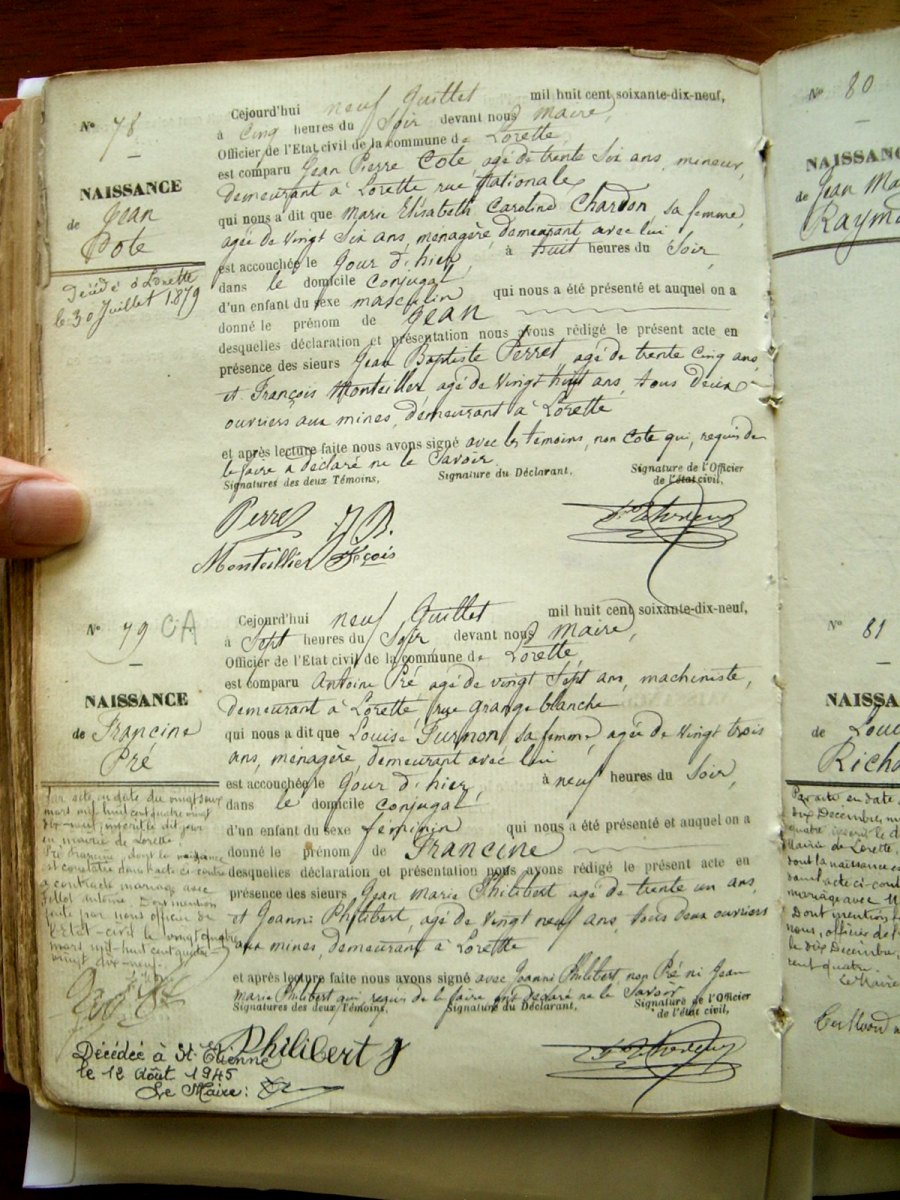 N° 78
NAISSANCE
de Jean
Cote
Décédé à Lorette
le 30 Juillet 1879
Cejourd'hui neuf Juillet mil huit cent soixante-dix-neuf,
à Cinq heures du Soir devant nous Maire,
Officier de l'Etat civil de la commune de Lorette
est comparu Jean Pierre Cote, agé de trente Six ans, mineur,
demeurant à Lorette rue Nationale
qui nous a dit que Marie Elisabeth Caroline Chardon, sa femme,
agée de Vingt Six ans, ménagère, demeurant avec lui
est accouchée le Jour d'hier, à huit heures du Soir,
dans le domicile conjugal,
d'un enfant du sexe masculin qui nous a été présenté et auquel on a
donné le prénom de Jean
desquelles déclaration et présentation nous avons rédigé le présent acte en
présence des sieurs Jean Baptiste Perret agé de trente Cinq ans,
et François Monteiller agé de Vingt huit ans, tous deux
ouvriers aux mines, demeurant à Lorette
et après lecture faite nous avons signé avec les témoins, non Cote qui, requis de
le faire a déclaré ne le Savoir
Signatures des deux Témoins, Signature du Déclarant, Signature de l'Officier
de l'état civil,
Perret J B.
Monteillier Fçois
N° 79 CA
NAISSANCE
de Francine
Pré
Par acte en date du vingt deux
mars mil-huit cent quatre vingt
dix-neuf, inscrit le dit jour
en mairie de Lorette,
Pré Francine, dont la naissance
est constatée dans l'acte ci-contre
a contracté mariage avec
antoine. Dont mention
faite par nous officier de
l'Etat-civil le vingt quatre
mars mil-huit cent quatre-
vingt dix-neuf.
Décédée à St-Etienne
le 12 Août 1945
Le Maire:
Cejourd'hui neuf Juillet mil huit cent soixante-dix-neuf,
à Sept heures du Soir devant nous Maire,
Officier de l'Etat civil de la commune de Lorette
est comparu Antoine Pré agé de vingt Sept ans, machiniste,
demeurant à Lorette, rue Grange blanche
qui nous a dit que Louise Furnon, sa femme, agée de Vingt trois
ans, ménagère, demeurant avec lui
est accouchée le Jour d'hier, à neuf heures du Soir,
dans le domicile conjugal,
d'un enfant du sexe féminin qui nous a été présenté et auquel on a
donné le prénom de Francine
desquelles déclaration et présentation nous avons rédigé le présent acte en
présence des sieurs Jean Marie Philibert agé de trente un ans
et Joanni Philibert, agé de Vingt neuf ans, tous deux ouvriers
aux mines, demeurant à Lorette
et après lecture faite nous avons signé avec Joanni Philibert, non Pré ni Jean
Marie Philibert qui, requis de le faire ont déclaré ne le Savoir
Signatures des deux Témoins, Signature du Déclarant, Signature de l'Officier
de l'état civil,
Philibert J
N° 80
NAISSANC
de Jean Ma
Raym
N° 81
NAISSA
de Loui
Richa
Par acte en date
dix Décembre, mi
quatre, inscrit le d
Mairie de Lorette,
dont la naissance es
dans l'acte ci-cont
mariage avec M
Dont mention f
nous, officier de l
le dix Décembre,
cent quatre.
Le Maire